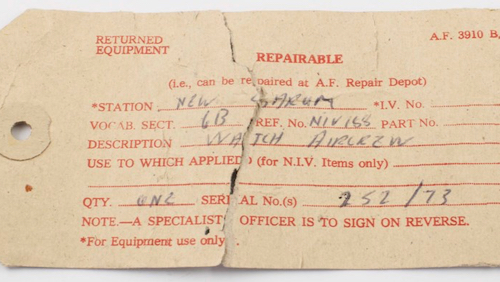 RETURNED
EQUIPMENT
A.F. 3910 B,
REPAIRABLE
(i.e., can be repaired at A.F. Repair Depot)
*STATION NEW SARUM *I.V. No.
VOCAB. SECT. 6B REF. No. NIV188 PART No.
DESCRIPTION WATCH AIRCREW
USE TO WHICH APPLIED (for N.I.V. Items only)
QTY. ONE SERIAL No.(s) 252/73
NOTE.—A SPECIALIST OFFICER IS TO SIGN ON REVERSE.
*For Equipment use only.